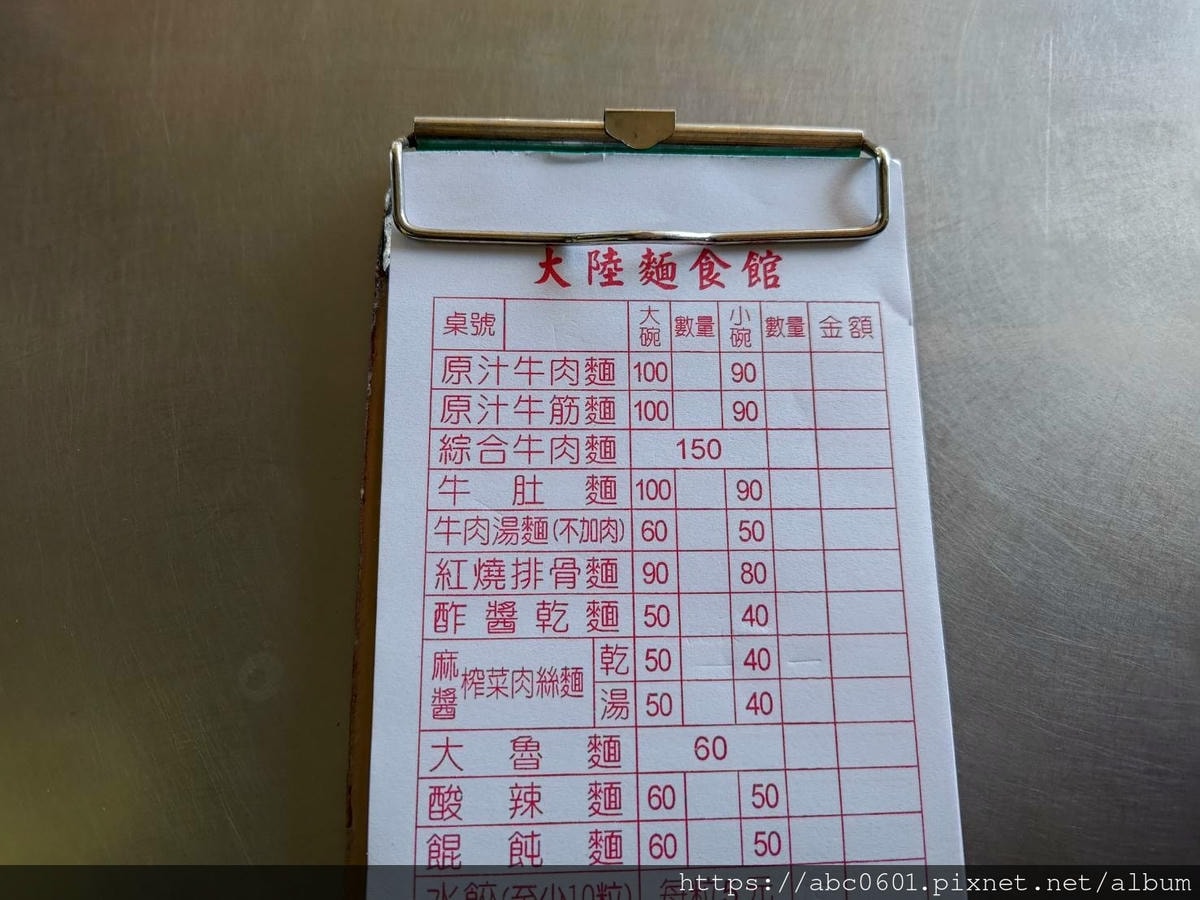 大陸麵食館
桌號 大碗 數量 小碗 數量 金額
原汁牛肉麵 100 90
原汁牛筋麵 100 90
綜合牛肉麵 150
牛肚麵 100 90
牛肉湯麵(不加肉) 60 50
紅燒排骨麵 90 80
酢醬乾麵 50 40
麻醬榨菜肉絲麵 乾 50 40
湯 50 40
大魯麵 60
酸辣麵 60 50
餛飩麵 60 50
水餃(至少10粒) 每粒5元
https://abc0601.pixnet.net/album